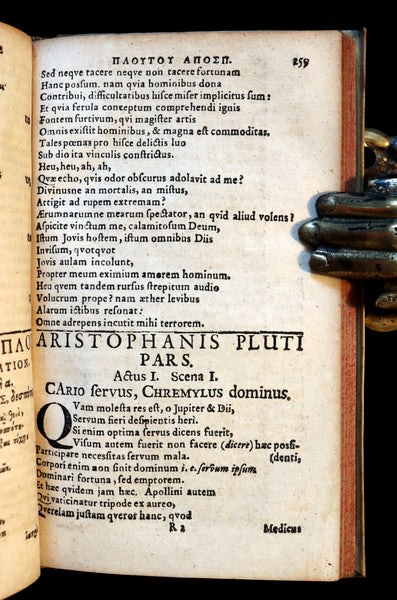 ΠΛΟΥΤΟΥ ΑΠΟΣΠ. 259
Sed neqve tacere neqve non tacere fortunam
Hanc possum. nam qvia hominibus dona
Contribui, difficultatibus hisce miser implicitus sum:
Et qvia ferula conceptum comprehendi ignis
Fontem furtivum, qvi magister artis
Omnis existit hominibus, & magna est commoditas.
Tales pœnas pro hisce delictis luo
Sub dio ita vinculis constrictus.
Heu, heu, ah, ah,
Qvæ echo, qvis odor obscurus adolavit ad me?
Divinusne an mortalis, an mistus,
Attigit ad rupem extremam?
Ærumnarumne mearum spectator, an qvid aliud volens?
Aspicite vinctum me, calamitosum Deum,
Istum Jovis hostem, istum omnibus Diis
Invisum, qvotqvot
Jovis aulam incolunt,
Propter meum eximium amorem hominum.
Heu qvem tandem rursus strepitum audio
Volucrum prope? nam æther levibus
Alarum ictibus resonat:
Omne adrepens incutit mihi terrorem.
ARISTOPHANIS PLUTI
PARS.
Actus I. Scena I.
CARIO servus, CHREMYLUS dominus.
QVam molesta res est, o Jupiter & Dii,
Servum fieri desipientis heri.
Si enim optima servus dicens fuerit,
Visum autem fuerit non facere (dicere) hæc possi-
Participare necessitas servum mala. (denti,
Corpori enim non sinit dominum i. e. servum ipsum
Dominari fortuna, sed emptorem.
Et hæc qvidem jam hæc. Apollini autem
Qvi vaticinatur tripode ex aureo,
Qverelam justam qveror hanc, qvod
R 2 Medicus